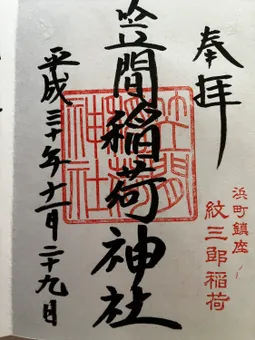 奉拝
浜町鎮座
紋三郎稲荷
笠間稲荷神社
笠間稲荷神社
平成三十年十一月二十九日